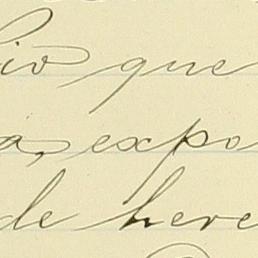 io que
a, expo
de here